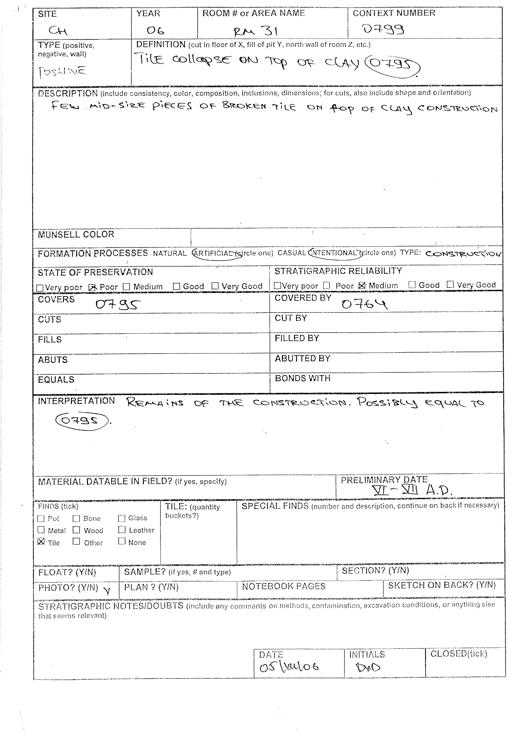 SITE YEAR ROOM # or AREA NAME CONTEXT NUMBER
CH 06 RM 31 0799
TYPE (positive, negative, wall) DEFINITION (cut in floor of X, fill of pit Y, north wall of room Z, etc.)
POSITIVE TILE COLLAPSE ON TOP OF CLAY (0795)
DESCRIPTION (include consistency, color, composition, inclusions, dimensions; for cuts, also include shape and orientation)
FEW MID-SIZE PIECES OF BROKEN TILE ON TOP OF CLAY CONSTRUCTION
MUNSELL COLOR
FORMATION PROCESSES NATURAL ARTIFICIAL (circle one) CASUAL INTENTIONAL (circle one) TYPE: CONSTRUCTION
STATE OF PRESERVATION STRATIGRAPHIC RELIABILITY
☐ Very poor ☒ Poor ☐ Medium ☐ Good ☐ Very Good ☐ Very poor ☐ Poor ☒ Medium ☐ Good ☐ Very Good
COVERS 0795 COVERED BY 0764
CUTS CUT BY
FILLS FILLED BY
ABUTS ABUTTED BY
EQUALS BONDS WITH
INTERPRETATION REMAINS OF THE CONSTRUCTION. POSSIBLY EQUAL TO
(0795).
MATERIAL DATABLE IN FIELD? (if yes, specify) PRELIMINARY DATE
VI - VII A.D.
FINDS (tick) TILE: (quantity buckets?) SPECIAL FINDS (number and description, continue on back if necessary)
☐ Pot ☐ Bone ☐ Glass
☐ Metal ☐ Wood ☐ Leather
☒ Tile ☐ Other ☐ None
FLOAT? (Y/N) SAMPLE? (if yes, # and type) SECTION? (Y/N)
PHOTO? (Y/N) Y PLAN ? (Y/N) NOTEBOOK PAGES SKETCH ON BACK? (Y/N)
STRATIGRAPHIC NOTES/DOUBTS (include any comments on methods, contamination, excavation conditions, or anything else
that seems relevant)
DATE INITIALS CLOSED(tick)